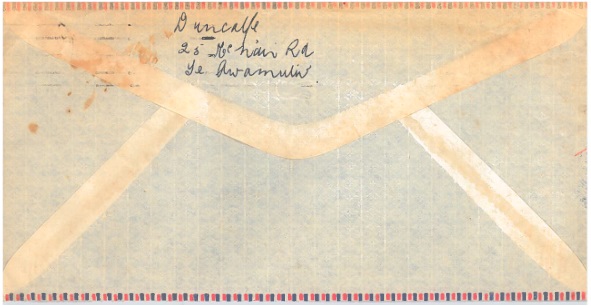 Duncalfe
25 McNair Rd
Te Awamutu.